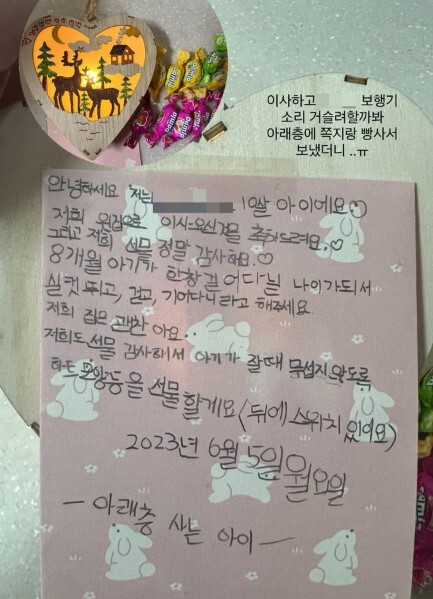 이사하고 보행기
소리 거슬려할까봐
아래층에 쪽지랑 빵사서
보냈더니 ..ㅠ
안녕하세요 저는 10쌀 아이에요
저희 윗집으로 이사-오신걸 축하드려요.♡
그리고 저희 선물 정말 감사해요.♡
8개월 아기가 한창걸어다닐 나이가되서
실컷 뛰고, 걷고, 기어다니라고 해주세요.
저희 집은 괜찬아요.
저희도 선물 감사해서 아기가 잘때 무섭지않도록
하트 모양등을 선물할게요(뒤에 스위치 있어요)
2023년 6월 5일 월요일
- 아래층 사는 아이 -